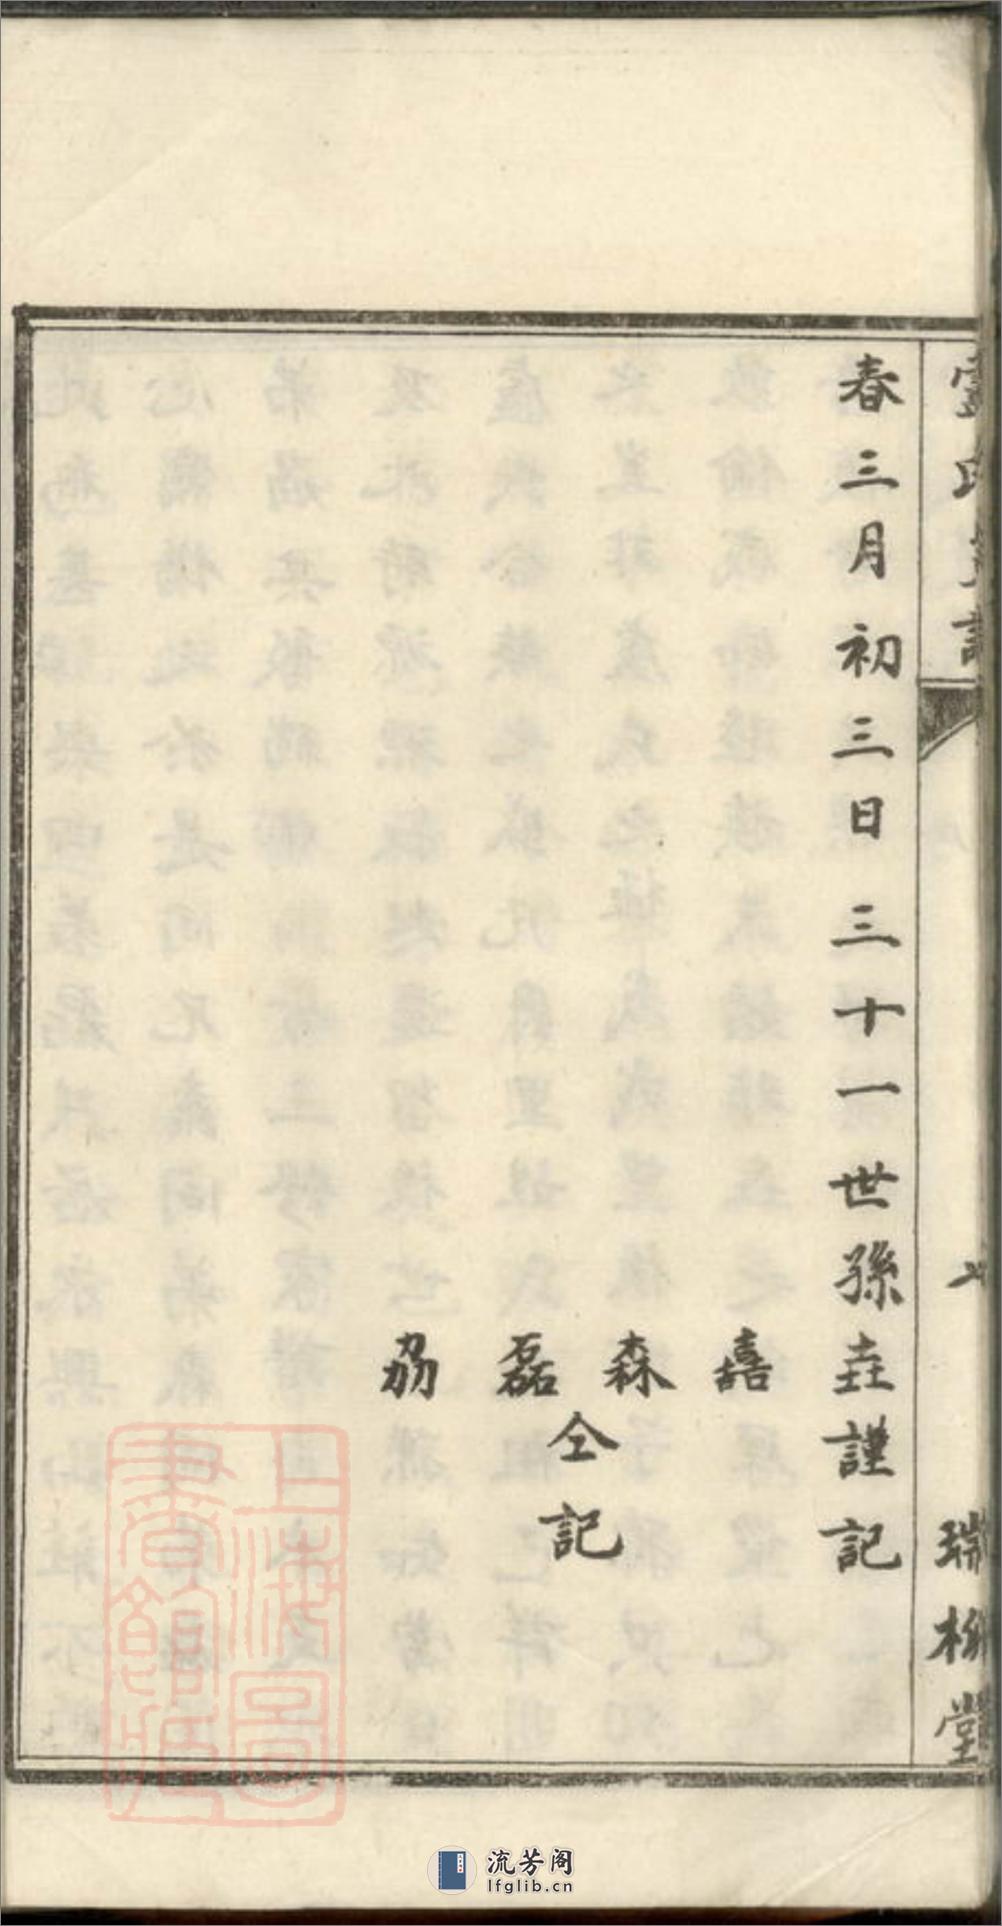 瑞柳堂
春三月初三日三十一世孫垚謹記
嚞
森
磊
劦
仝
記
上海圖書館藏
流芳阁
lfglib.cn